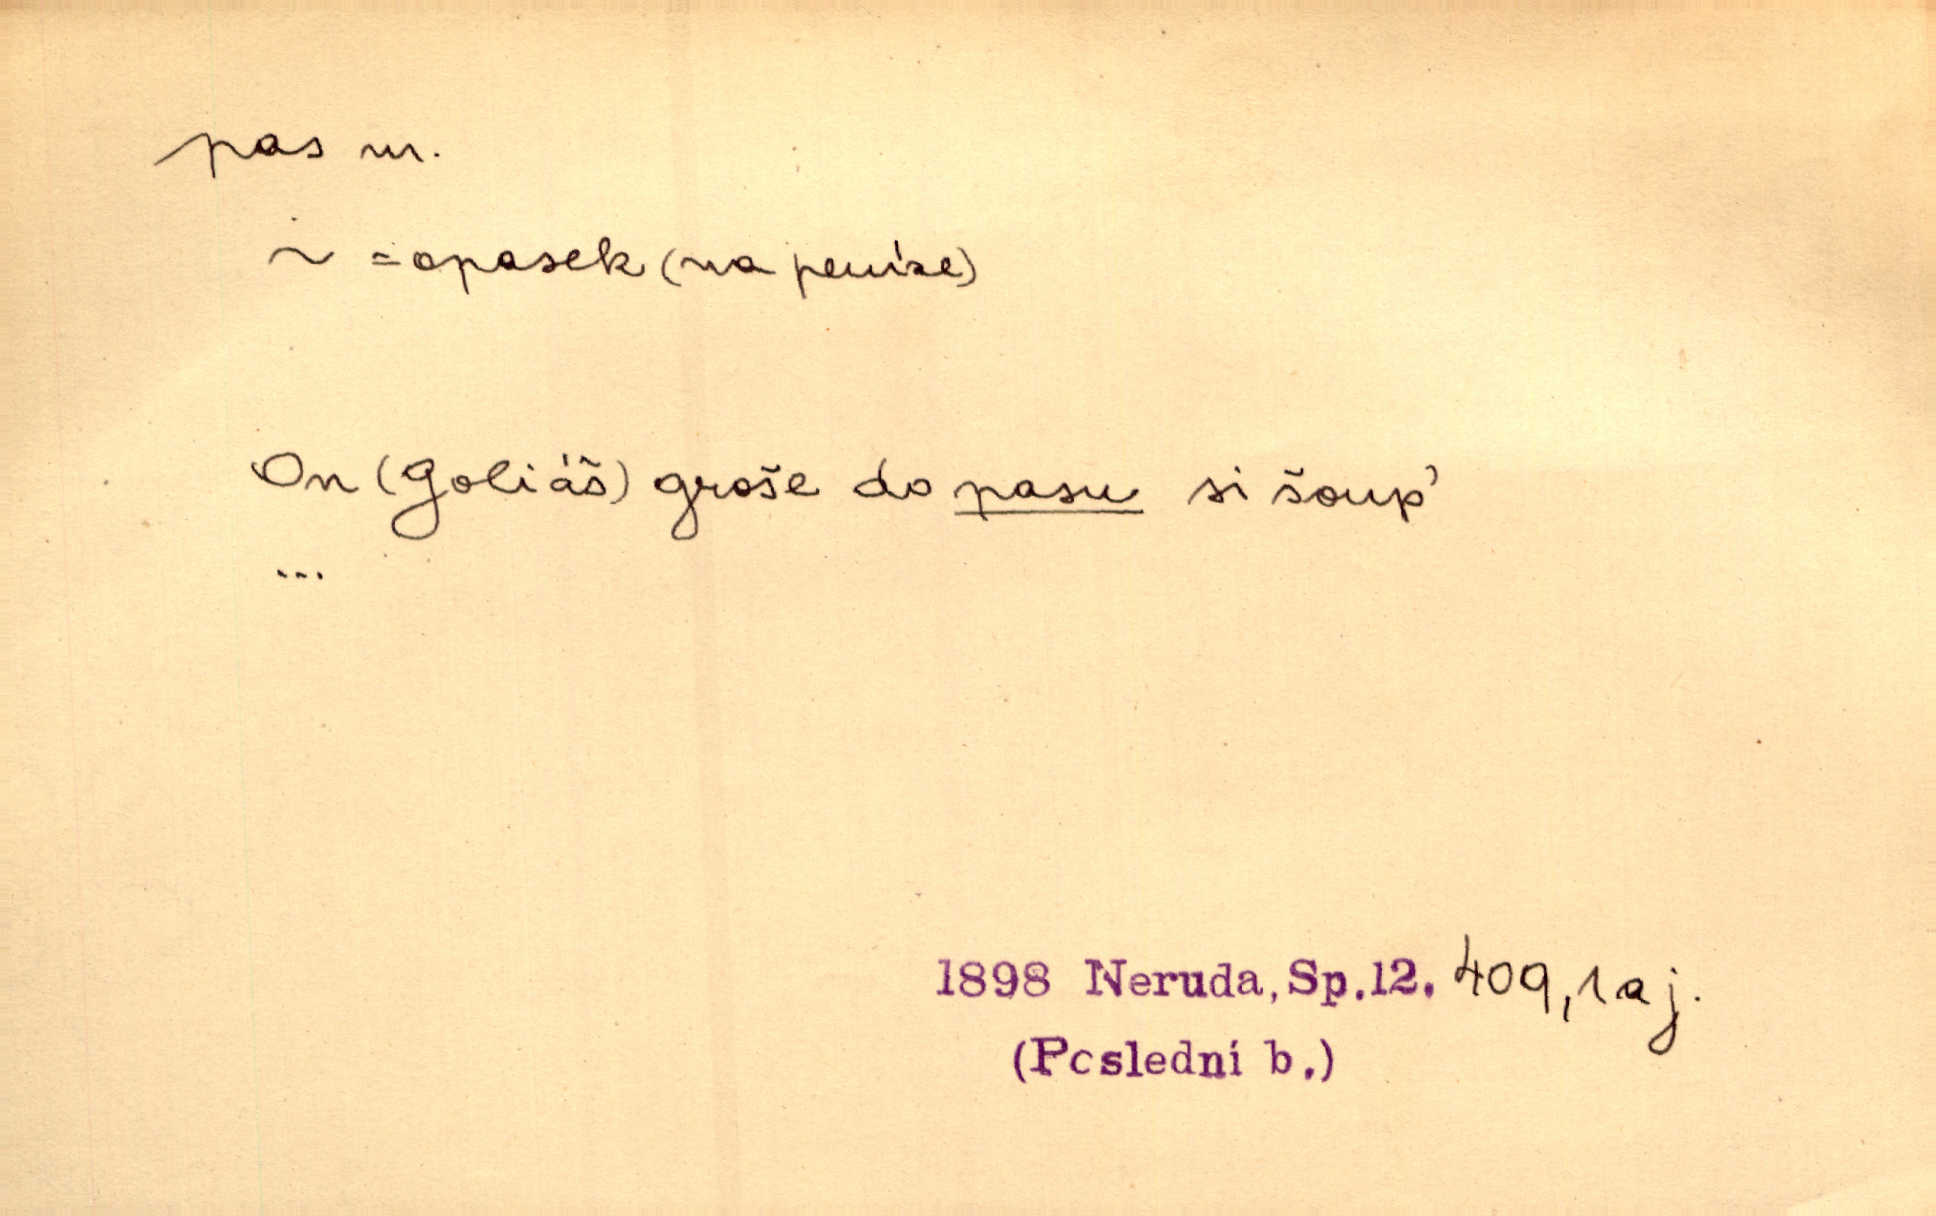 pas m.
~ = opasek (na peníze)
On (Goliáš) groše do pasu si šoup'
...
1898 Neruda, Sp.12. 409, 1 a j.
(Poslední b.)